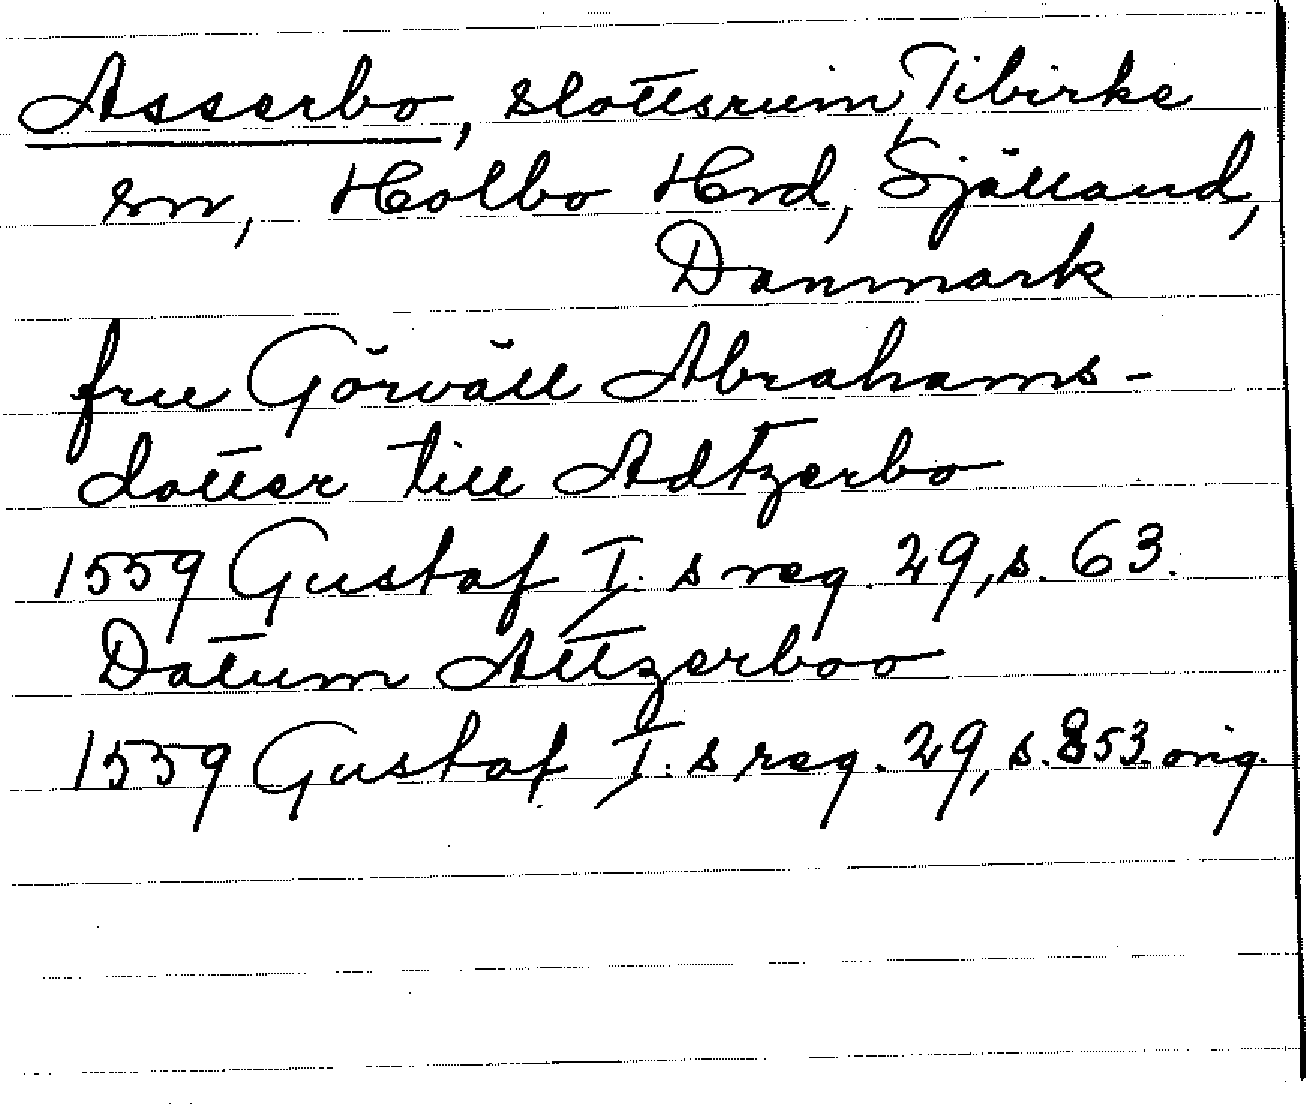 Asserbo, slottsruin, Tibirke
sn, Holbo Hrd, Själland,
Danmark
frue Görväll Abrahams-
dotter till Adtzerbo
1559 Gustaf I:s reg. 29, s. 63.
Datum Attzerboo
1559 Gustaf I:s reg. 29, s. 853 orig.